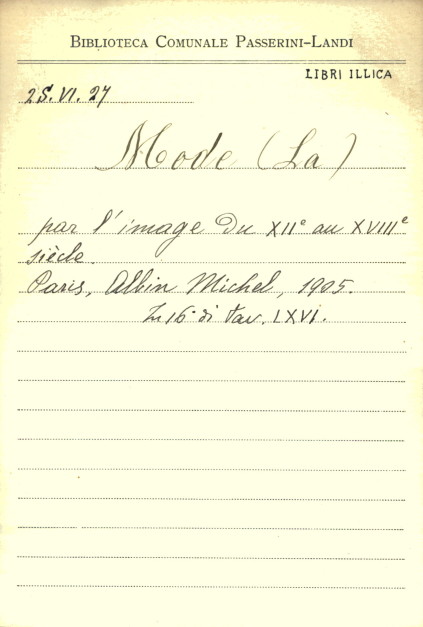 BIBLIOTECA COMUNALE PASSERINI-LANDI
LIBRI ILLICA
25.VI.27
Mode (La)
par l'image du XIIe au XVIIIe
siècle.
Paris, Albin Michel, 1905.
In 16° di tav. LXVI.